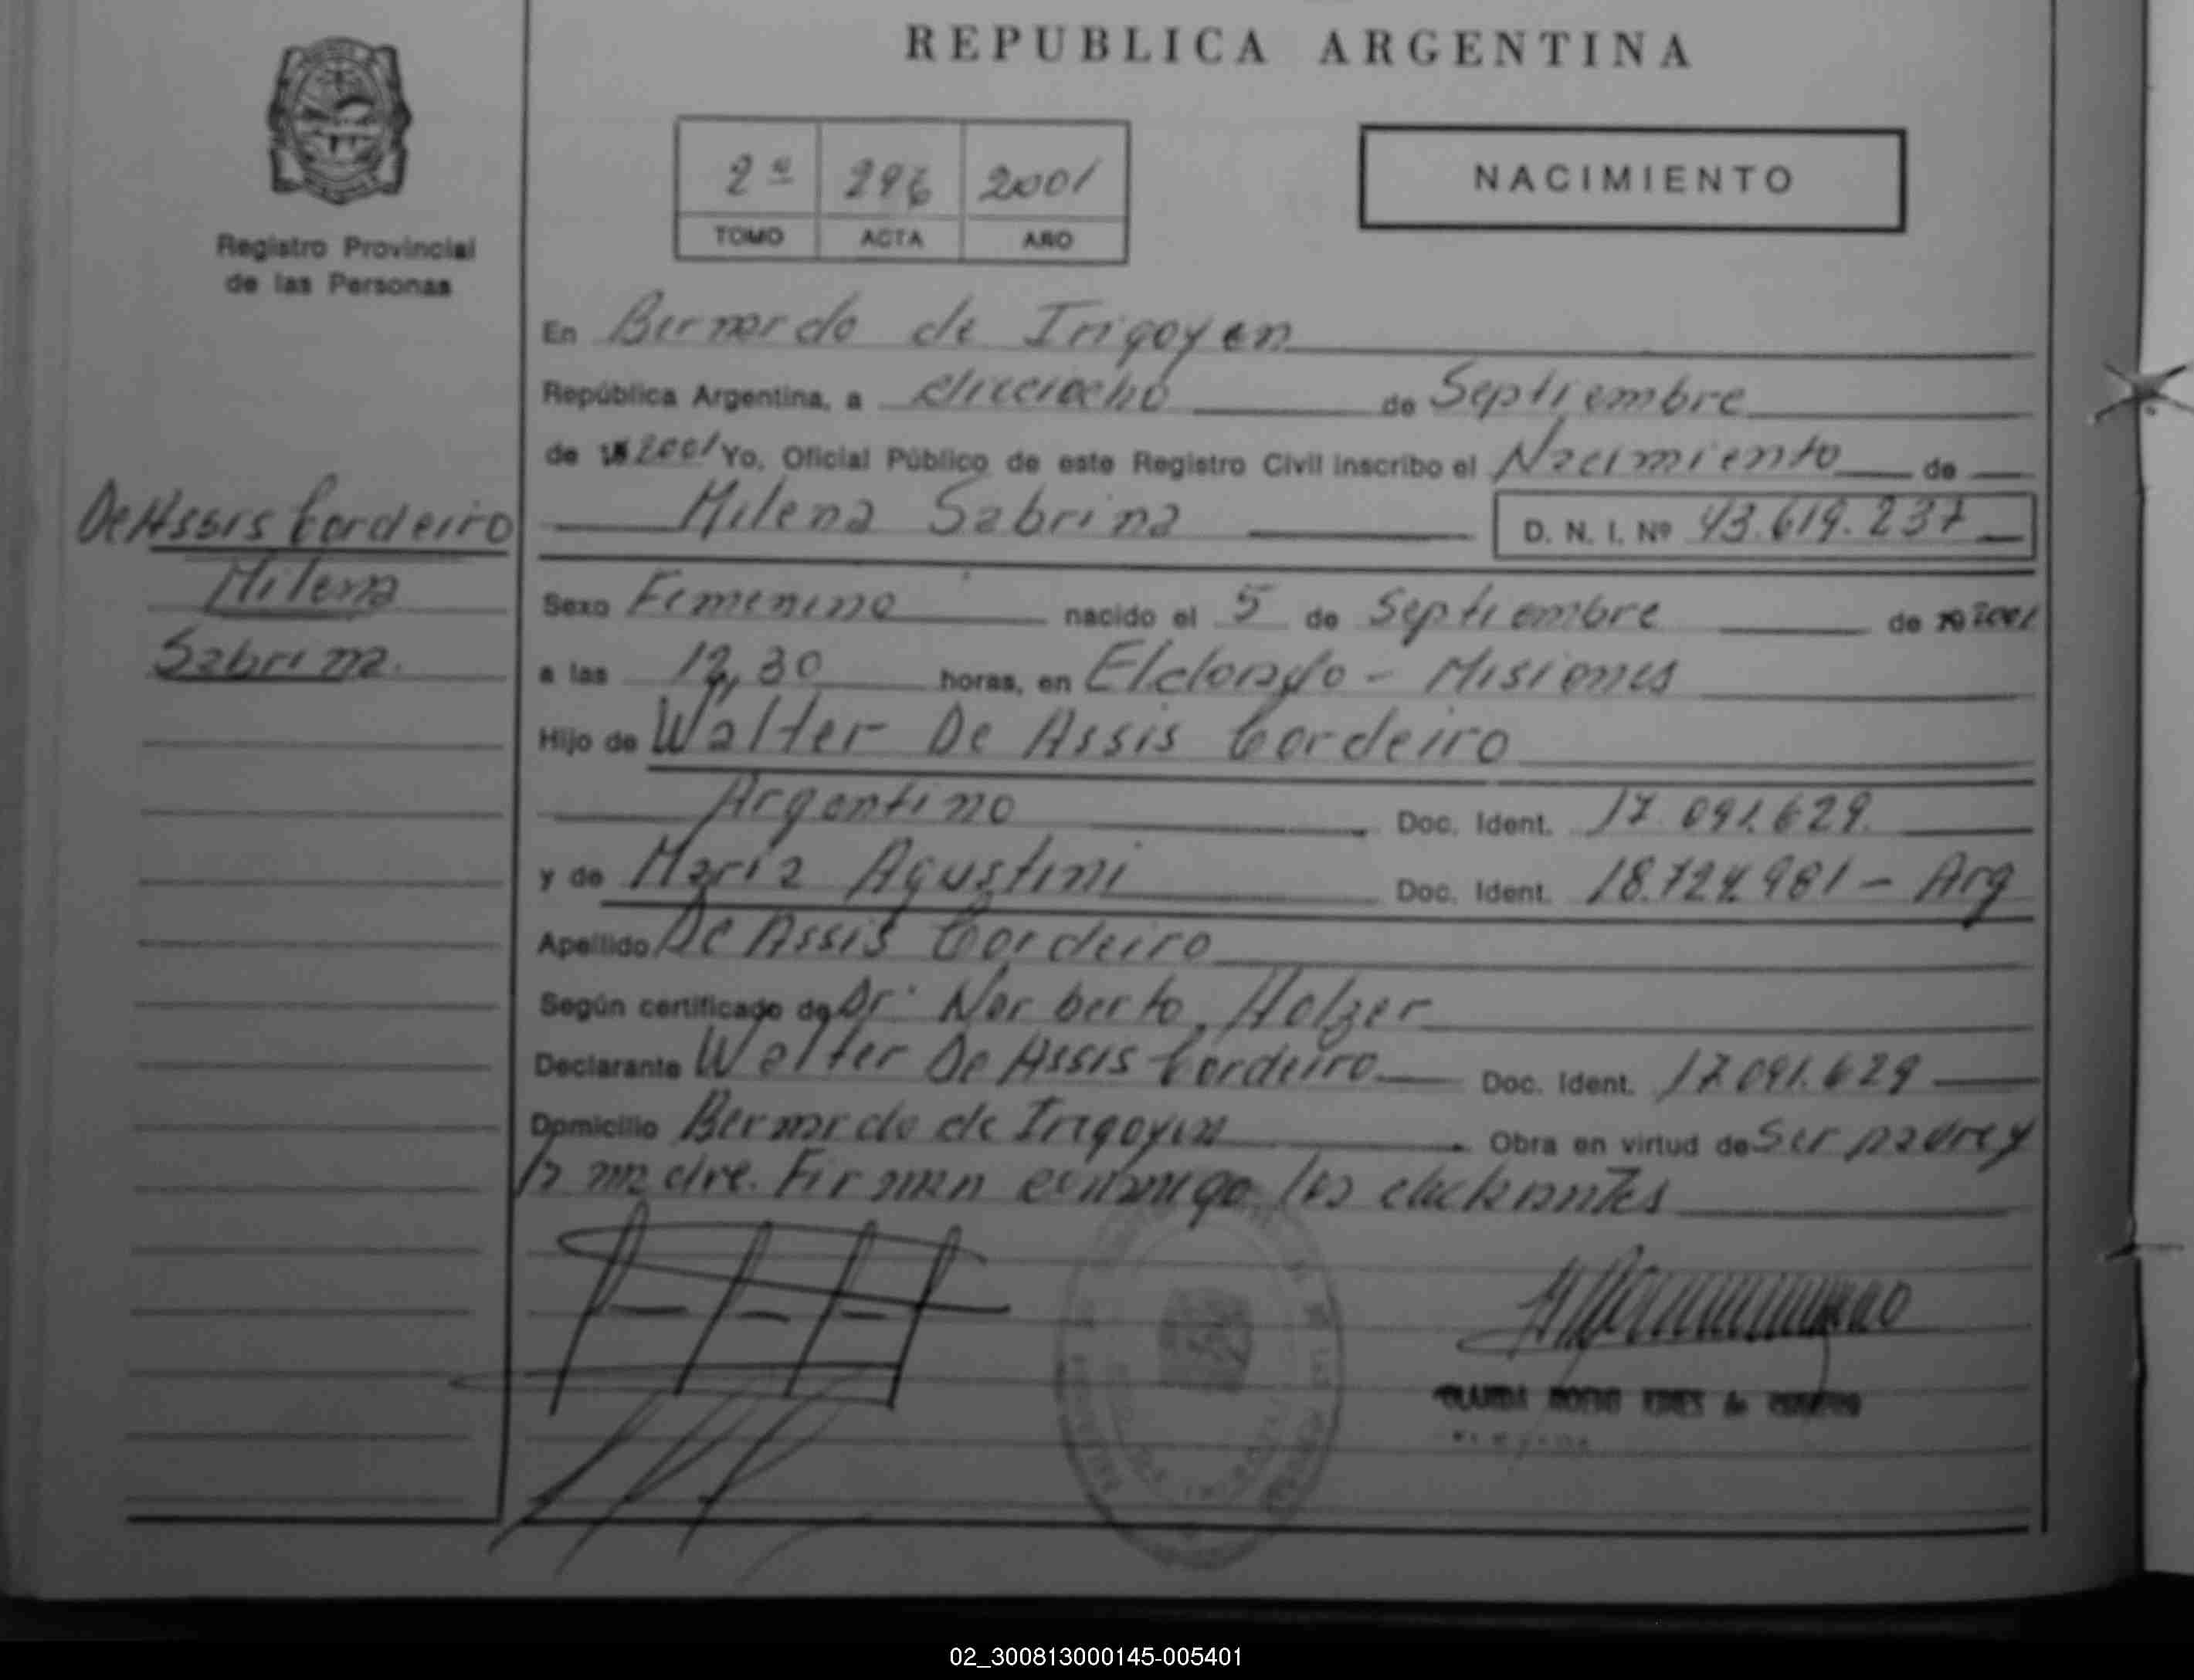 REPUBLICA ARGENTINA
2ª 296 2001
TOMO ACTA AÑO
NACIMIENTO
Registro Provincial
de las Personas
En Bernardo de Irigoyen
República Argentina, a dieciocho de Septiembre
de 2001 Yo, Oficial Público de este Registro Civil inscribo el Nacimiento de
Milena Sabrina D. N. I. Nº 43.619.237
De Assis Cordeiro
Milena
Sabrina.
Sexo Femenino nacido el 5 de Septiembre de 2001
a las 12,30 horas, en Eldorado - Misiones
Hijo de Walter De Assis Cordeiro
Argentino Doc. Ident. 17.091.629
y de María Agustini Doc. Ident. 18.724.981 - Arg
Apellido De Assis Cordeiro
Según certificado de Dr. Norberto, Holzer
Declarante Walter De Assis Cordeiro Doc. Ident. 17.091.629
Domicilio Bernardo de Irigoyen Obra en virtud de Ser padre y
la madre. Firman conmigo los declarantes
02_300813000145-005401